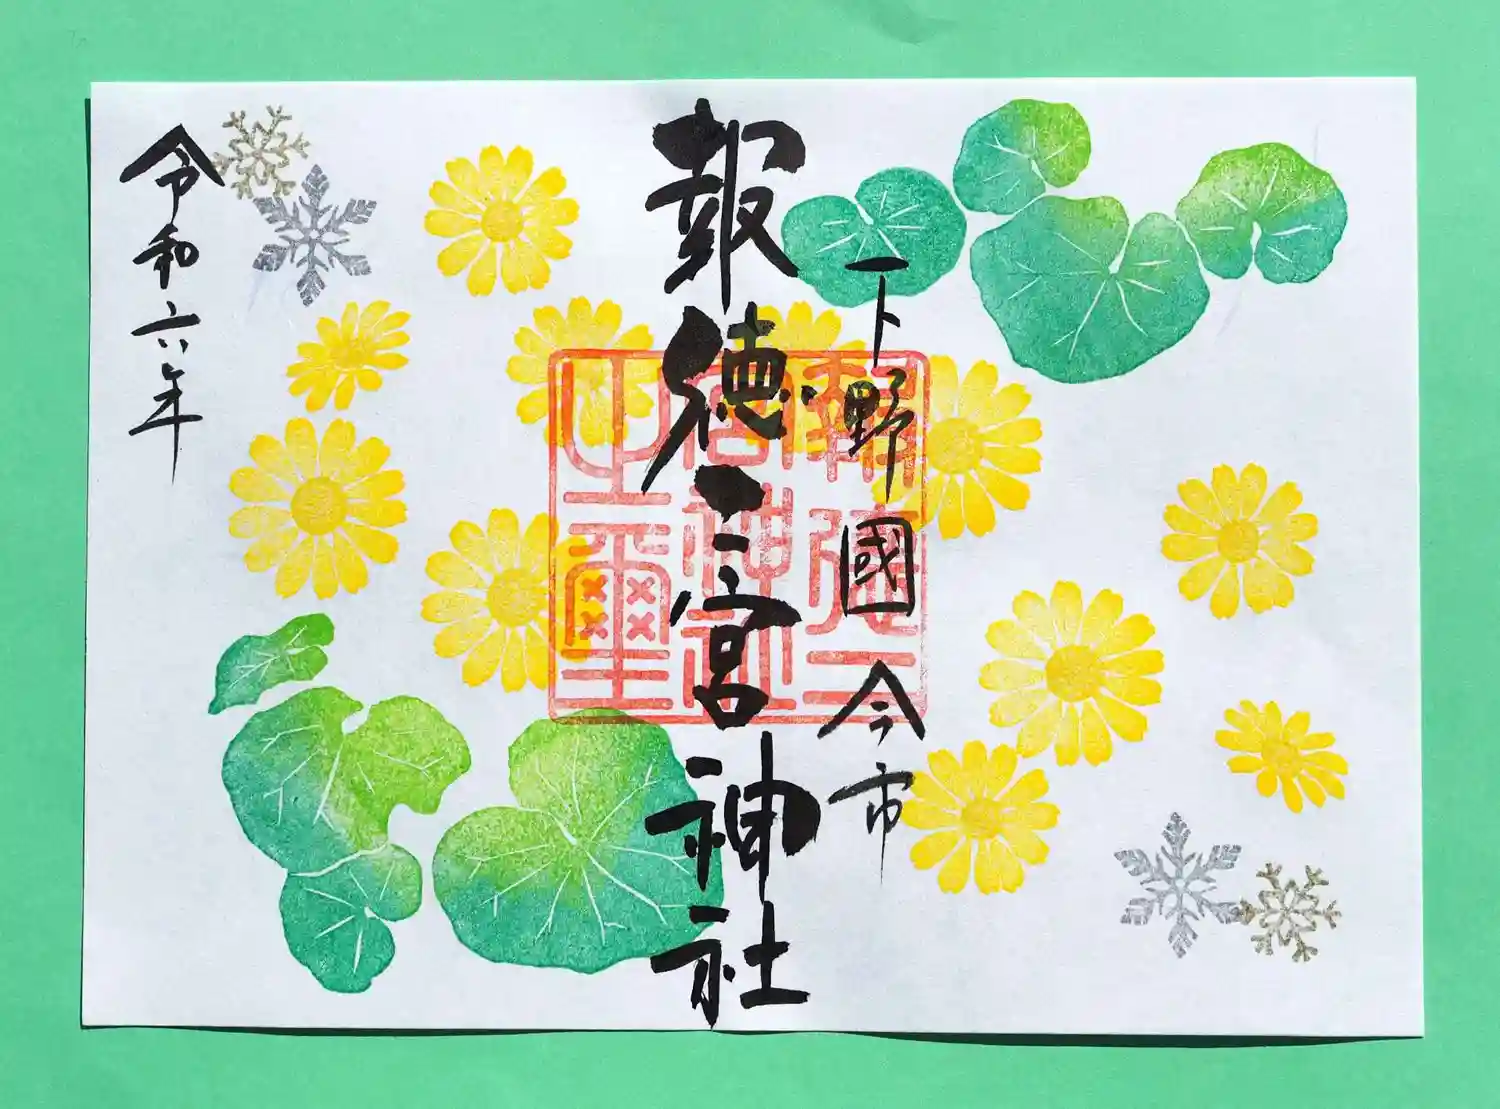 下野國今市
報徳二宮神社
令和六年
報徳二
宮神社
之璽